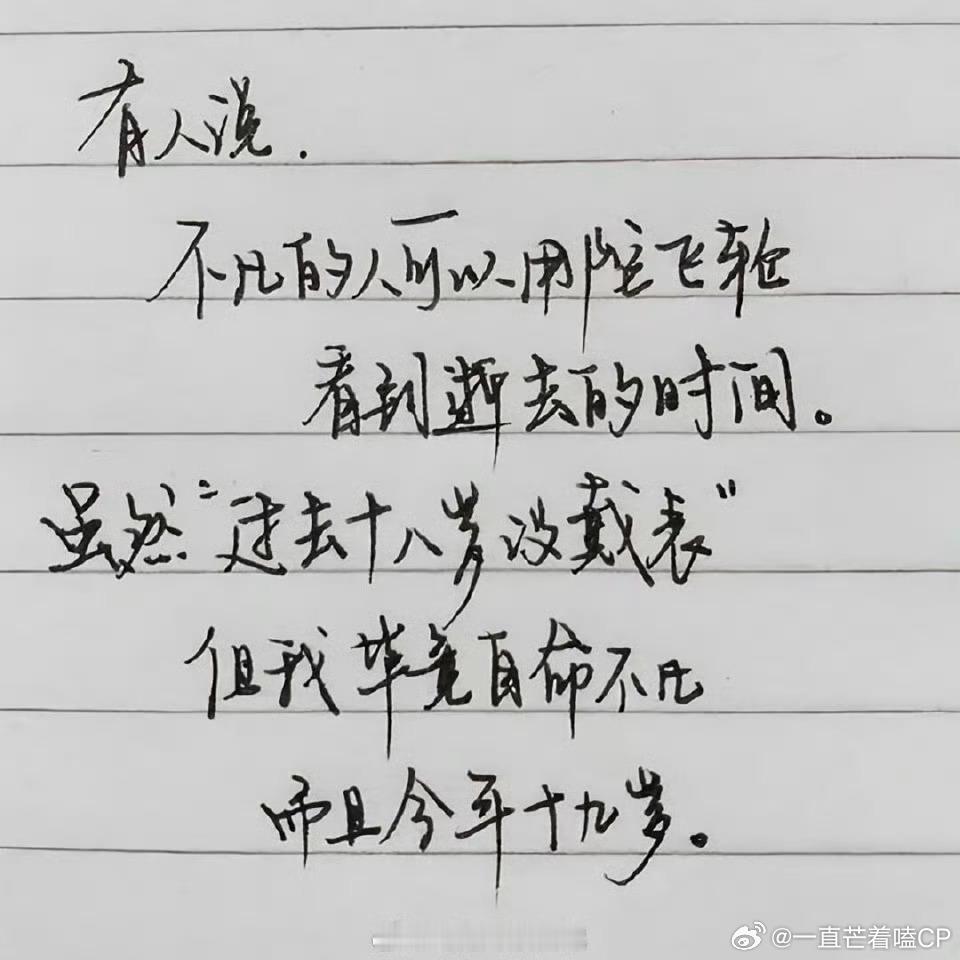 有人说.
不凡的人可以用陀飞轮
看到逝去的时间。
虽然“过去十八岁没戴表”
但我毕竟自命不凡
而且今年十九岁。
@一直芒着嗑CP